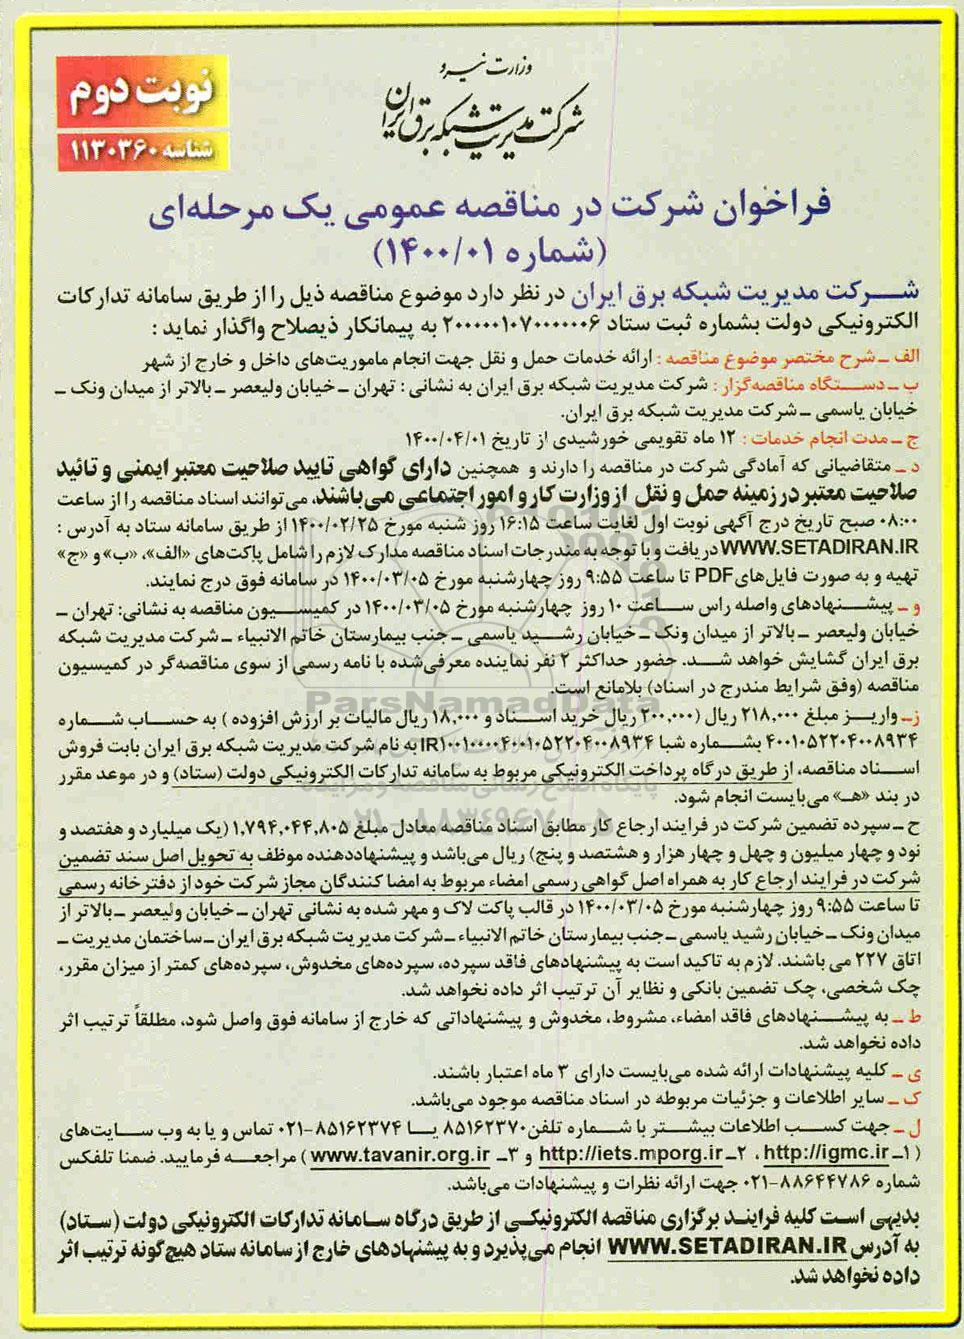 وزارت نیرو
شرکت مدیریت شبکه برق ایران
نوبت دوم
شناسه ۱۱۳۰۳۶۰
فراخوان شرکت در مناقصه عمومی یک مرحله‌ای
(شماره ۱۴۰۰/۰۱)
شرکت مدیریت شبکه برق ایران در نظر دارد موضوع مناقصه ذیل را از طریق سامانه تدارکات
الکترونیکی دولت بشماره ثبت ستاد ۲۰۰۰۰۰۱۰۷۰۰۰۰۰۰۶ به پیمانکار ذیصلاح واگذار نماید :
الف ـ شرح مختصر موضوع مناقصه : ارائه خدمات حمل و نقل جهت انجام ماموریت‌های داخل و خارج از شهر
ب ـ دستگاه مناقصه‌گزار : شرکت مدیریت شبکه برق ایران به نشانی : تهران ـ خیابان ولیعصر ـ بالاتر از میدان ونک ـ
خیابان یاسمی ـ شرکت مدیریت شبکه برق ایران.
ج ـ مدت انجام خدمات : ۱۲ ماه تقویمی خورشیدی از تاریخ ۱۴۰۰/۰۴/۰۱
د ـ متقاضیانی که آمادگی شرکت در مناقصه را دارند و همچنین دارای گواهی تایید صلاحیت معتبر ایمنی و تائید
صلاحیت معتبر در زمینه حمل و نقل از وزارت کار و امور اجتماعی می‌باشند، می‌توانند اسناد مناقصه را از ساعت
۰۸:۰۰ صبح تاریخ درج آگهی نوبت اول لغایت ساعت ۱۶:۱۵ روز شنبه مورخ ۱۴۰۰/۰۲/۲۵ از طریق سامانه ستاد به آدرس :
WWW.SETADIRAN.IR دریافت و با توجه به مندرجات اسناد مناقصه مدارک لازم را شامل پاکت‌های «الف»، «ب» و «ج»
تهیه و به صورت فایل‌های PDF تا ساعت ۹:۵۵ روز چهارشنبه مورخ ۱۴۰۰/۰۳/۰۵ در سامانه فوق درج نمایند.
و ـ پیشنهادهای واصله راس ساعت ۱۰ روز چهارشنبه مورخ ۱۴۰۰/۰۳/۰۵ در کمیسیون مناقصه به نشانی: تهران ـ
خیابان ولیعصر ـ بالاتر از میدان ونک ـ خیابان رشید یاسمی ـ جنب بیمارستان خاتم الانبیاء ـ شرکت مدیریت شبکه
برق ایران گشایش خواهد شد. حضور حداکثر ۲ نفر نماینده معرفی‌شده با نامه رسمی از سوی مناقصه‌گر در کمیسیون
مناقصه (وفق شرایط مندرج در اسناد) بلامانع است.
ParsNamadData
ز ـ واریز مبلغ ۲۱۸,۰۰۰ ریال (۲۰۰,۰۰۰ ریال خرید اسناد و ۱۸,۰۰۰ ریال مالیات بر ارزش افزوده ) به حساب شماره
۴۰۰۱۰۵۲۲۰۴۰۰۸۹۳۴ بشماره شبا IR۱۰۰۱۰۰۰۰۴۰۰۱۰۵۲۲۰۴۰۰۸۹۳۴ به نام شرکت مدیریت شبکه برق ایران بابت فروش
اسناد مناقصه، از طریق درگاه پرداخت الکترونیکی مربوط به سامانه تدارکات الکترونیکی دولت (ستاد) و در موعد مقرر
پایگاه اطلاع رسانی مناقصه و مزایده
در بند «هـ» می‌بایست انجام شود.
ح ـ سپرده تضمین شرکت در فرایند ارجاع کار مطابق اسناد مناقصه معادل مبلغ ۱,۷۹۴,۰۴۴,۸۰۵ (یک میلیارد و هفتصد و
نود و چهار میلیون و چهل و چهار هزار و هشتصد و پنج) ریال می‌باشد و پیشنهاددهنده موظف به تحویل اصل سند تضمین
شرکت در فرایند ارجاع کار به همراه اصل گواهی رسمی امضاء مربوط به امضا کنندگان مجاز شرکت خود از دفترخانه رسمی
تا ساعت ۹:۵۵ روز چهارشنبه مورخ ۱۴۰۰/۰۳/۰۵ در قالب پاکت لاک و مهر شده به نشانی تهران ـ خیابان ولیعصر ـ بالاتر از
میدان ونک ـ خیابان رشید یاسمی ـ جنب بیمارستان خاتم الانبیاء ـ شرکت مدیریت شبکه برق ایران ـ ساختمان مدیریت ـ
اتاق ۲۲۷ می باشند. لازم به تاکید است به پیشنهادهای فاقد سپرده، سپرده‌های مخدوش، سپرده‌های کمتر از میزان مقرر،
چک شخصی، چک تضمین بانکی و نظایر آن ترتیب اثر داده نخواهد شد.
ط ـ به پیشنهادهای فاقد امضاء، مشروط، مخدوش و پیشنهاداتی که خارج از سامانه فوق واصل شود، مطلقاً ترتیب اثر
داده نخواهد شد.
ی ـ کلیه پیشنهادات ارائه شده می‌بایست دارای ۳ ماه اعتبار باشند.
ک ـ سایر اطلاعات و جزئیات مربوطه در اسناد مناقصه موجود می‌باشد.
ل ـ جهت کسب اطلاعات بیشتر با شماره تلفن ۸۵۱۶۲۳۷۰ یا ۸۵۱۶۲۳۷۴-۰۲۱ تماس و یا به وب سایت‌های
( ۱ـ http://igmc.ir ، ۲ـ http://iets.mporg.ir و ۳ـ www.tavanir.org.ir ) مراجعه فرمایید. ضمنا تلفکس
شماره ۸۸۶۴۴۷۸۶-۰۲۱ جهت ارائه نظرات و پیشنهادات می‌باشد.
بدیهی است کلیه فرایند برگزاری مناقصه الکترونیکی از طریق درگاه سامانه تدارکات الکترونیکی دولت (ستاد)
به آدرس WWW.SETADIRAN.IR انجام می‌پذیرد و به پیشنهادهای خارج از سامانه ستاد هیچ‌گونه ترتیب اثر
داده نخواهد شد.